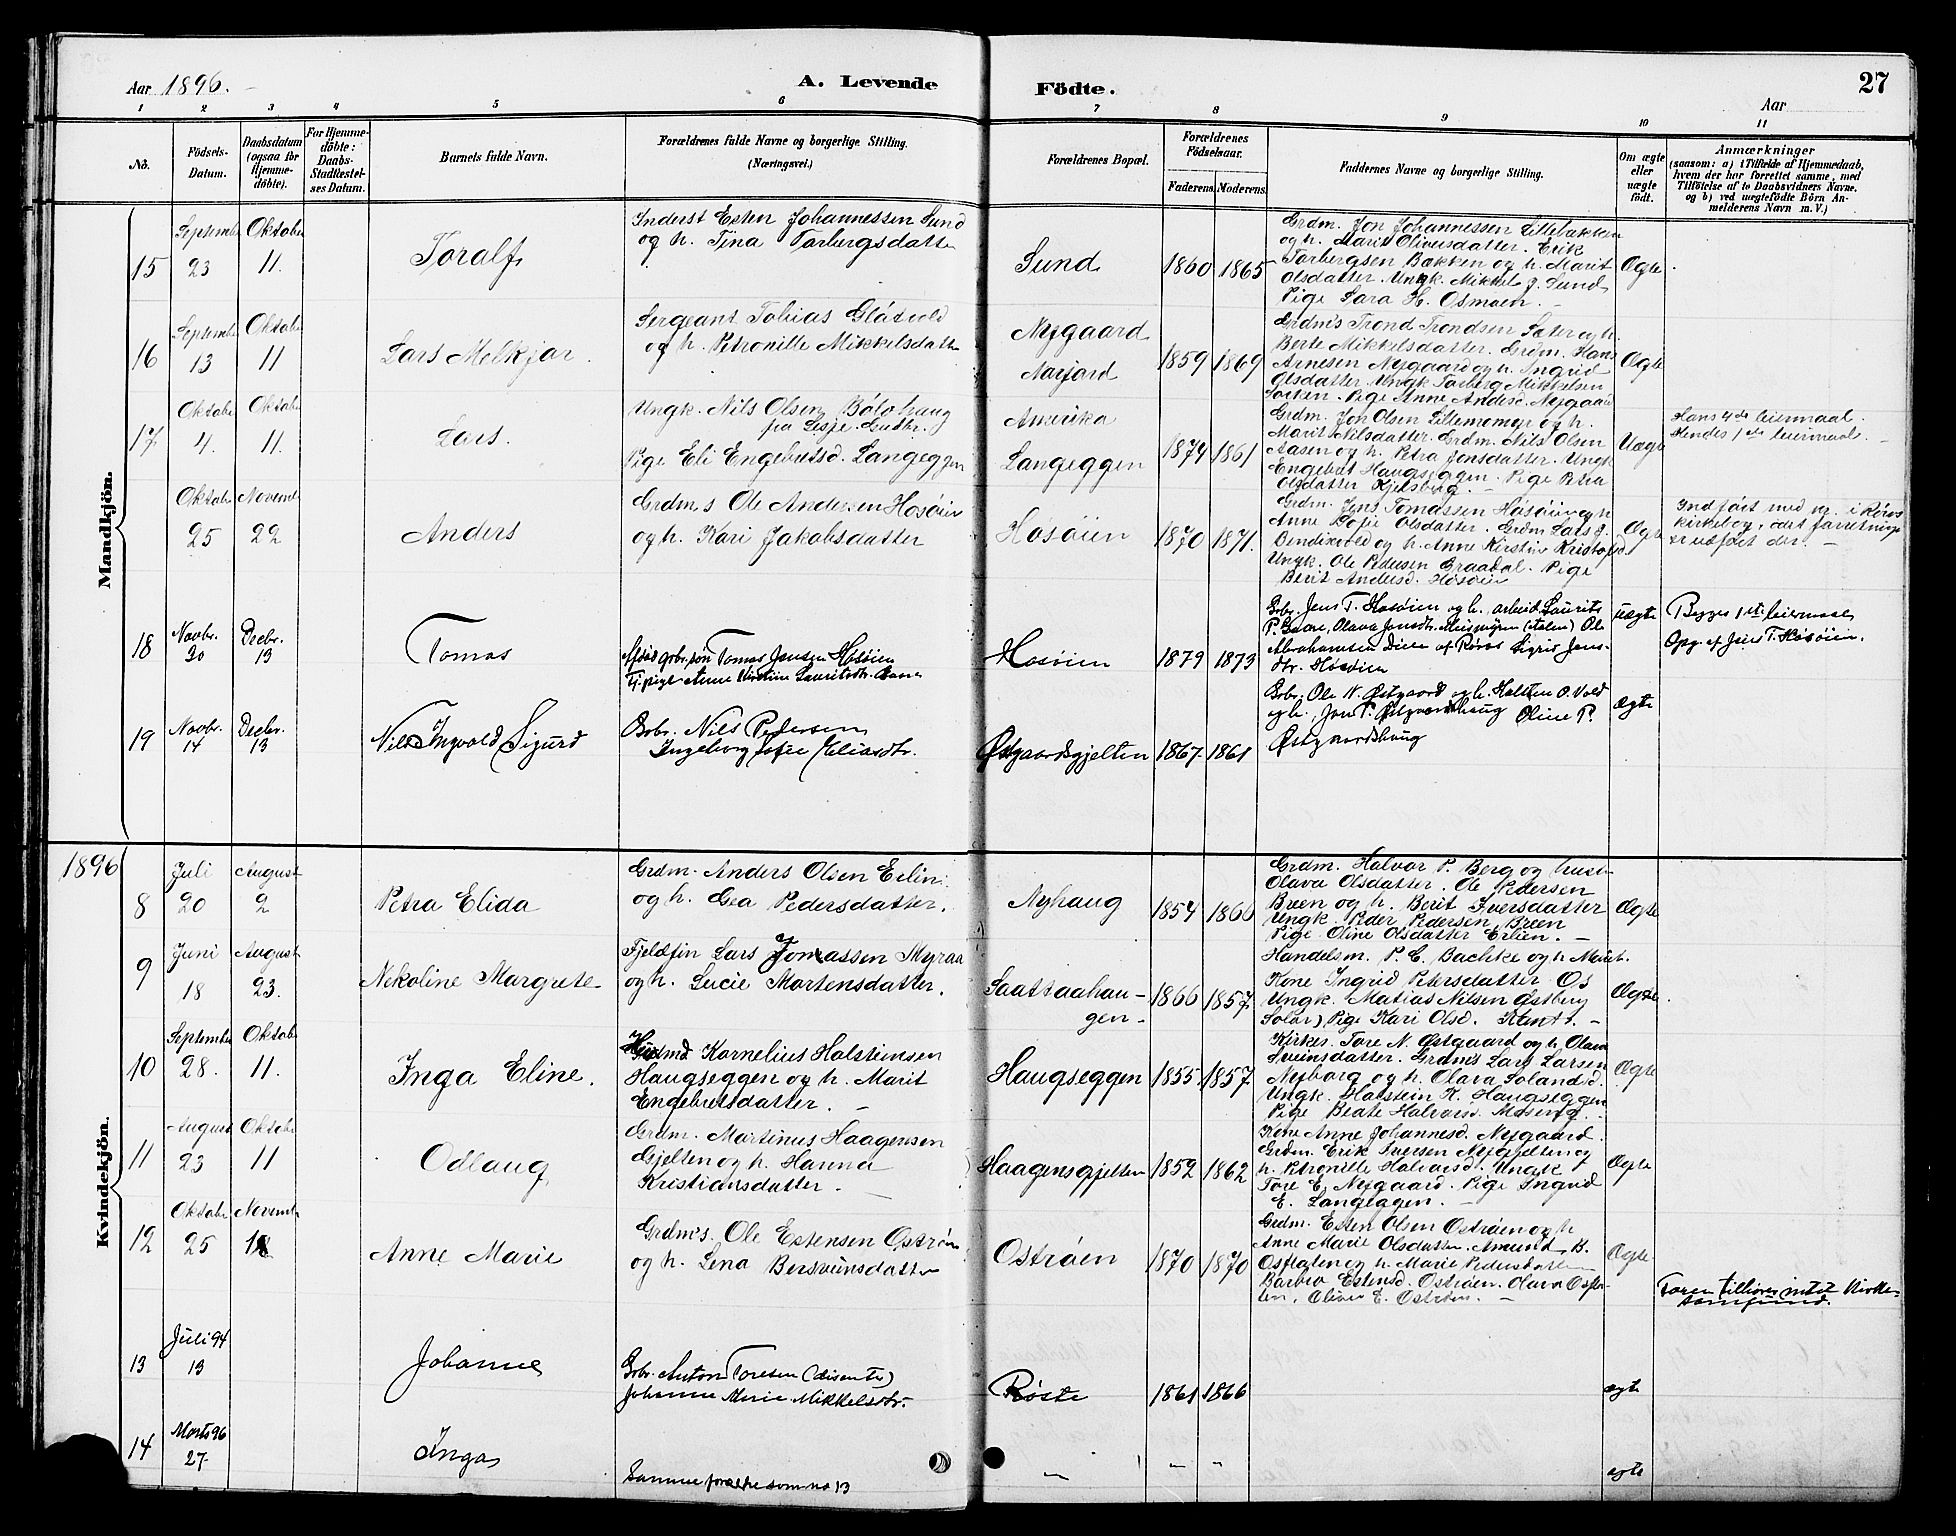 Aar 1896.
A. Levende Födte.
27
Aar
1 2 3 4 5 6 7 8 9 10 11
No.
Födsels-Datum.
Daabsdatum (ogsaa for Hjemme-döbte).
For Hjemme-döbte: Daabs-Stadfæstel-ses Datum.
Barnets fulde Navn.
Forældrenes fulde Navne og borgerlige Stilling. (Næringsvei.)
Forældrenes Bopæl.
Forældrenes Födselsaar.
Faderens. Moderens.
Faddernes Navne og borgerlige Stilling.
Om ægte eller uægte födt.
Anmærkninger
(saasom: a) i Tilfælde af Hjemmedaab,
hvem der har forrettet samme, med
Tilföielse af to Daabsvidners Navne.
og b) ved uægtefödte Börn An-
melderens Navn m. V.)
Mandkjön.
15
September 23
Oktober 11.
Toralf
Inderst Esten Johannessen Sund
og h. Tina Torbergsdatter
Sund
1860 1865
Grdm. Jon Johannessen Lillebakken
og h. Marit Oliversdatter. Erik
Torbergsen Bakken og h. Marit
Olsdatter. Ungk. Mikkel J. Sund
Pige Sara H. Osmoen.
Ægte
16
September 13
Oktober 11
Lars Melkjor.
Sergeant Tobias Glösvold
og h. Petronille Mikkelsdatter
Nygaard
Narjord
1859 1869
Grdm's Trond Trondsen Sæter og h.
Berte Mikkelsdatter. Grdm. Hans
Arnesen Nygaard og h. Ingrid
Olsdatter. Ungk Torberg Mikkelsen
Pige Anne Andersd. Nygaard
Ægte
17
Oktober 4.
Oktober 11.
Lars.
Ungk. Nils Olsen Bölohaug
fra Lesje. Gudbr.
Pige Eli Engebretsd. Langeggen
Amerika
Langeggen
1874 1861
Grdm. Jon Olsen Lillemomyr og h.
Marit Nilsdatter. Grdm. Nils Olsen
Aasen og h. Petra Jonsdatter. Ungk
Engebret Haugseggen. Pige Petra
Olsdatter Kjelsberg.
Uægte
Hans 4de leiermaal.
Hendes 1ste leiermaal.
18
Oktober 25
November 22
Anders
Grdm's Ole Andersen Hosöien
og h. Kari Jakobsdatter
Hosöien
1870 1871.
Grdm. Jens Tomassen Hosöien og h
Anne Sofie Olsdatter. Grdm Lars J.
Bendixvold og h. Anne Kirstine Kristofsd.
Ungk. Ole Pedersen Graadal. Pige
Berit Andersd. Hosöien
Ægte
Indfört med nr. i Röros
kirkebog, da forretningen
er udfört der.
Novbr. 30
Decbr. 13
Tomas
Afdöd gbr.sön Tomas Jensen Hosöien
Tj.pige Anne Kirstine Lauritsdtr. Gaare
Hosöien
1879 1873
Gbr. Jens T. Hosöien og h., arbeid. Laurits
P. Gaare, Olava Jensdtr. Ole
Abrahamsen af Röros Sigrid Jens-
dtr. Hosöien
uægte
Begges 1ste leiermaal
Opg. af Jens T. Hosöien.
19
Novbr. 14
Decbr. 13
Nils Ingvald Sigurd
Gbr. Nils Pedersen
Ingeborg Sofie Eliasdtr.
Østgaardsgjelten
1867. 1861
Gbr. Ole N. Østgaard og h. Halsten O. Vold
og h., Jon P. Østgaardshaug Oline P.
Østgaardshaug
ægte
1896
Kvindekjön.
8
Juli 20
August 2
Petra Elida
Grdm. Anders Olsen Erlien
og h. Gea Pedersdatter.
Nyhaug
1854 1860
Grdm. Halvor P. Berg og hust.
Olava Olsdatter. Ole Pedersen
Breen og h. Berit Iversdatter
Ungk. Peder Pedersen Breen
Pige Oline Olsdatter Erlien.
Ægte
9
Juni 18
August 23.
Nekoline Margrete
Fjeldfin Lars Jonassen Myraa
og h. Lucie Mortensdatter.
Saattaahau-
gen
1866 1857
Handelsm. P. E. Bachke og h. Marit.
Kone Ingrid Petersdatter Os
Ungk. Matias Nilsen Østberg
Solör, Pige Kari Olsd.
Ægte
10
September 28.
Oktober 11.
Inga Eline.
Husmd Kornelius Holstensen
Haugseggen og h. Marit
Engebretsdatter.
Haugseggen
1855 1857
Kirkes. Tore N. Østgaard og h. Olava
Sveinsdatter. Grdm's Lars Larsen
Nyborg og h. Olava Jolandsd.
Ungk. Halstein K. Haugseggen
Pige Beate Halvorsd. Moseng.
Ægte
11
August 23
Oktober 11
Odlaug
Grdm. Martinus Haagensen
Gjelten og h. Hanna
Kristiansdatter.
Haagensgjelten
1859 1862
Kone Anne Johannesd. Nygaard.
Grdm. Erik Iversen Nygjelten og
h. Petronille Halvorsd. Ungk
Tore E. Nygaard. Pige Ingrid
E. Langlagen.
Ægte
12
Oktober 25
November 18
Anne Marie
Grdm's. Ole Estensen Oströen
og h. Lena Bersvensdatter
Oströen
1870 1870
Grdm. Esten Olsen Oströen og h
Anne Marie Olsdatter. Amund B.
og h. Marie Pedersdatter
Barbro Estensd. Oströen. Olava
Oliver E. Oströen.
Ægte
13
Juli 94 13
Johanne
Gbr. Anton Toresen (disenter)
Johanne Marie Mikkelsdtr.
Röste
1861 1866
ægte
Faren tilhörer intet Kirke-
samfund.
14
Marts 96 27
Inga
Samme forældre som no 13
" " "
ægte